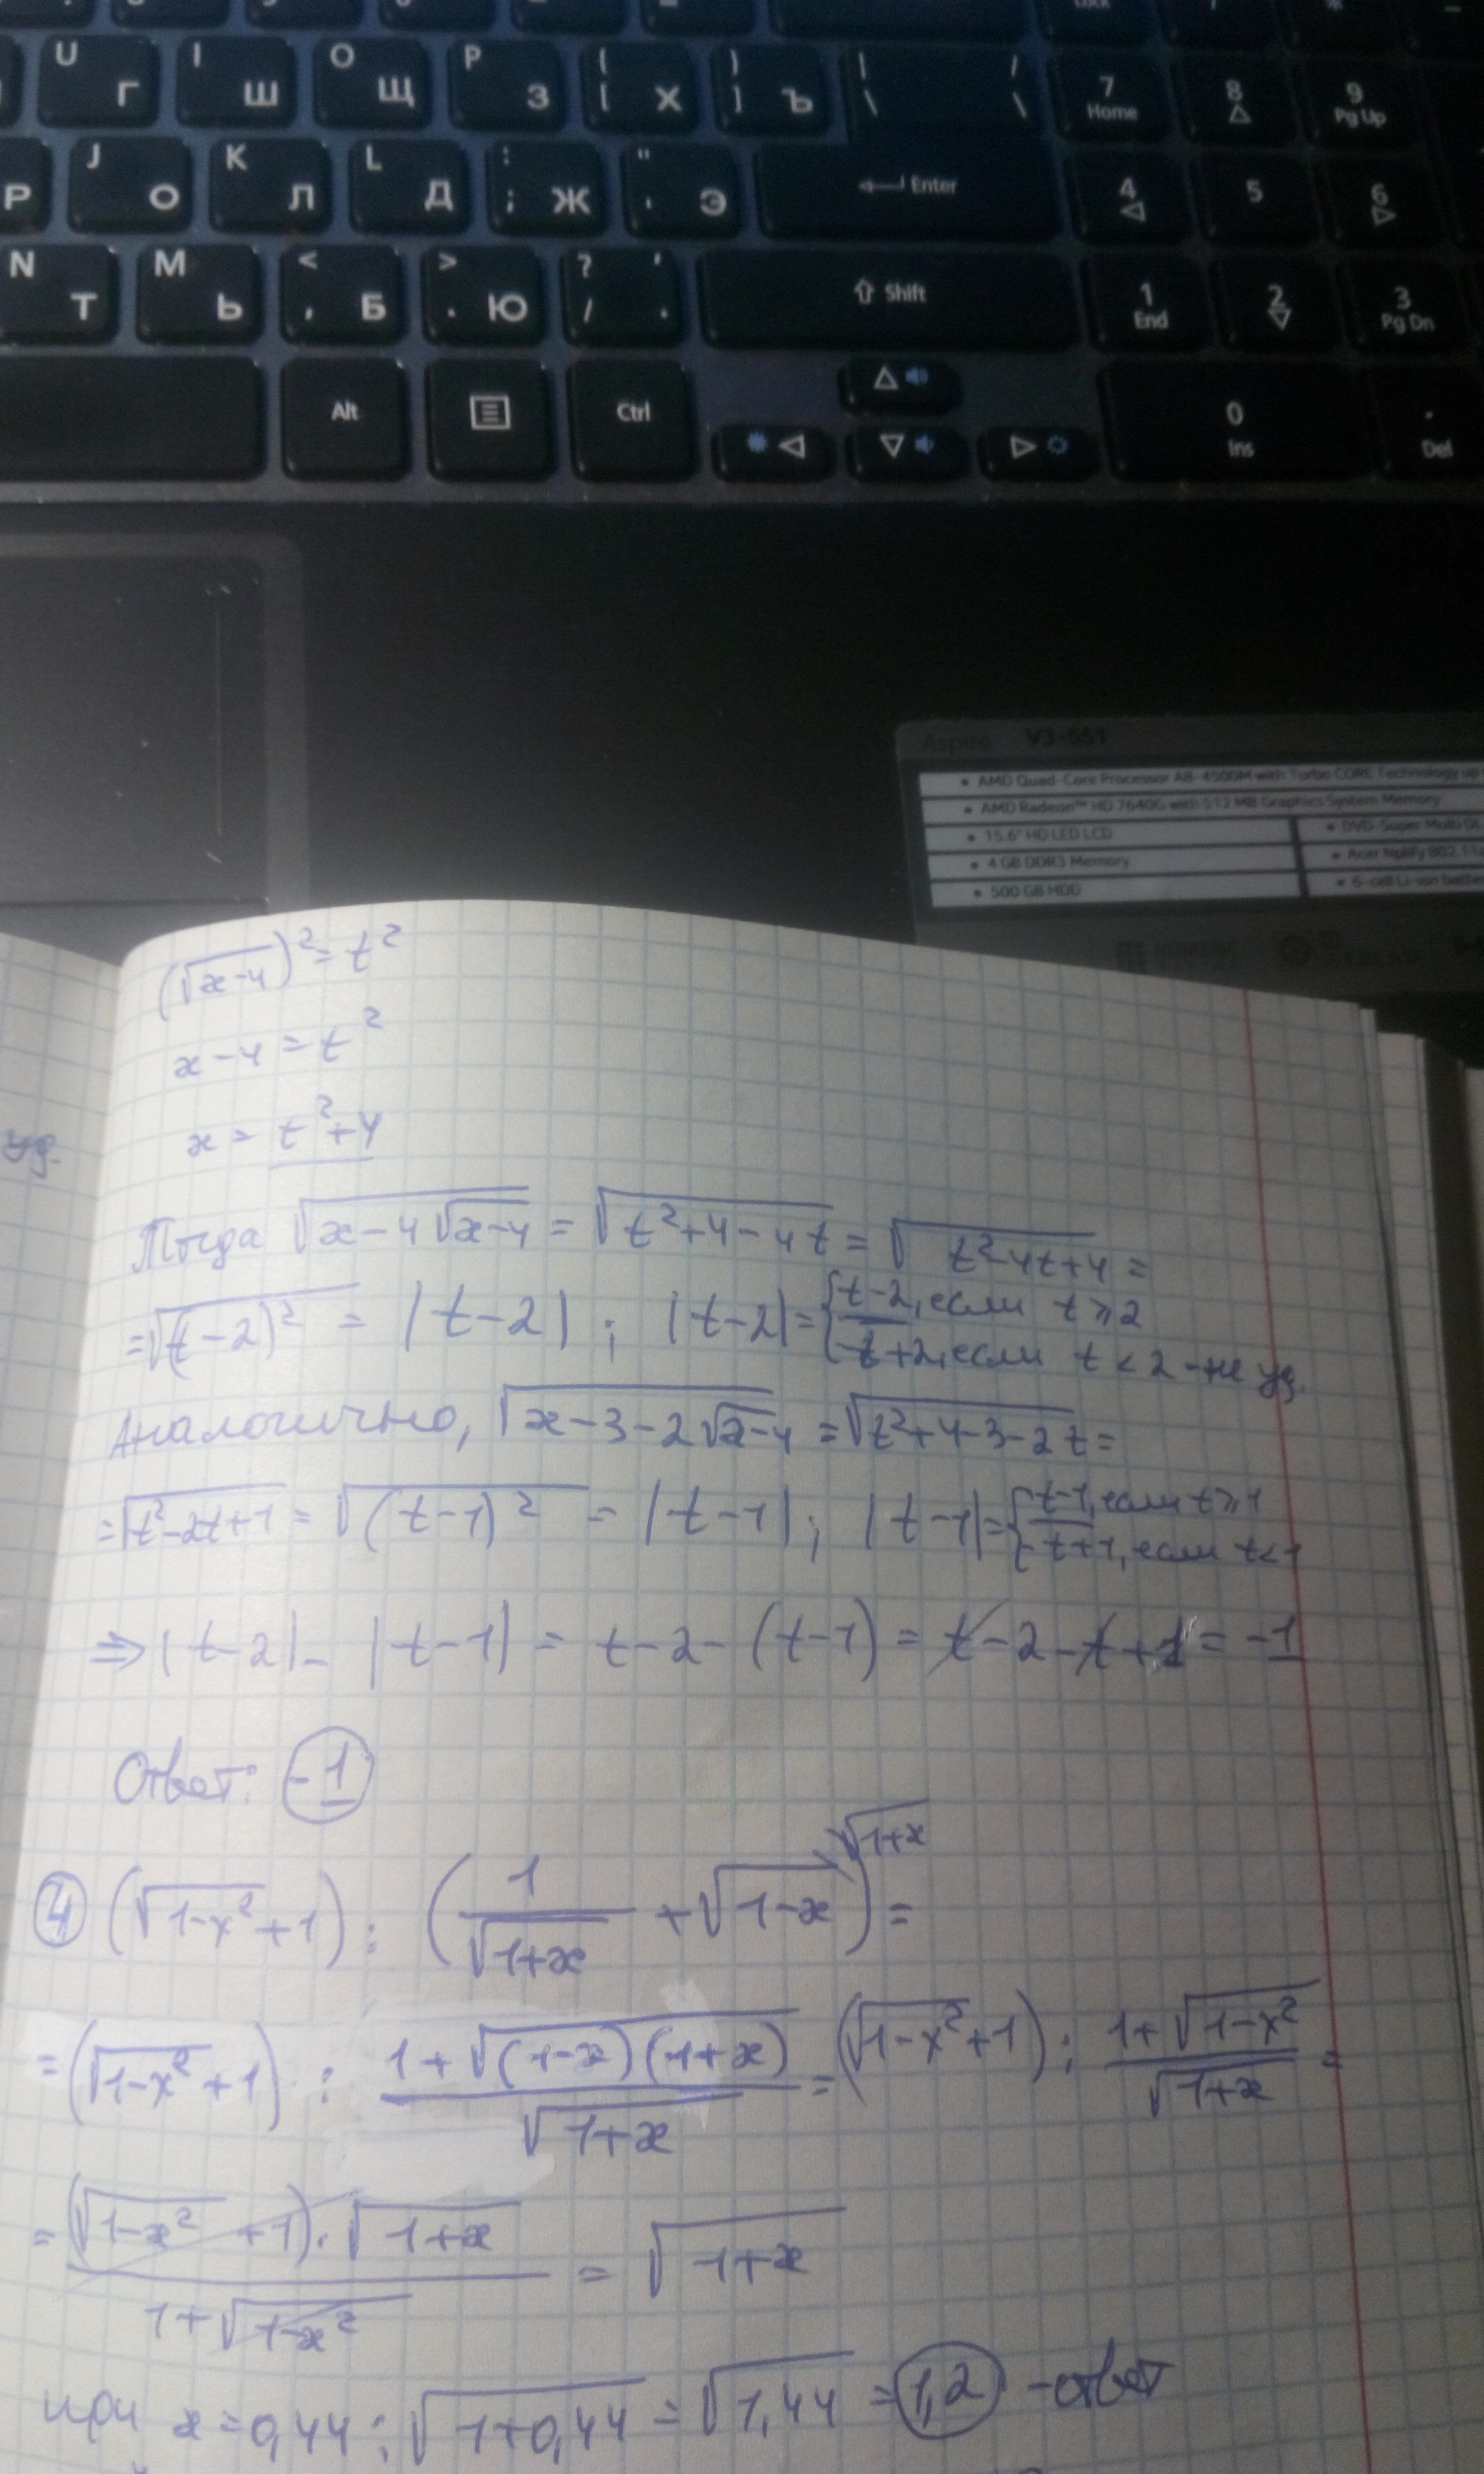 Lock / * -
U Г I Ш O Щ P З { [ Х } ] Ъ | \ / \ 7 Home 8 9 Pg Up
Р J О K Л L Д : ; Ж " ' Э Enter 4 5 6
N Т M Ь < , Б > . Ю ? / , . Shift 1 End 2 3 Pg Dn
Alt Ctrl 0 Ins . Del
Aspire V3-551
• AMD Quad-Core Processor A8-4500M with Turbo CORE Technology up
• AMD Radeon™ HD 7640G with 512 MB Graphics System Memory
• 15.6" HD LED LCD • DVD-Super Multi
• 4 GB DDR3 Memory • Acer Nplify 802.11
• 500 GB HDD • 6-cell Li-ion
(√(x-4))² = t²
x-4 = t²
уд.
x = t²+4
Тогда √(x-4√(x-4)) = √(t²+4-4t) = √(t²-4t+4) =
= √((t-2)²) = |t-2| ; |t-2| = { t-2, если t ≥ 2
-t+2, если t < 2 - не уд.
Аналогично, √(x-3-2√(x-4)) = √(t²+4-3-2t) =
= √(t²-2t+1) = √((t-1)²) = |t-1| ; |t-1| = { t-1, если t ≥ 1
-t+1, если t < 1
⇒ |t-2| - |t-1| = t-2-(t-1) = t-2-t+1 = -1
Ответ: -1
④ (√(1-x²)+1) : (1/√(1+x) + √(1-x) \√(1+x)) =
= (√(1-x²)+1) : (1+√((1-x)(1+x)))/√(1+x) = (√(1-x²)+1) : (1+√(1-x²))/√(1+x) =
= ((√(1-x²)+1)·√(1+x))/(1+√(1-x²)) = √(1+x)
при x = 0,44 : √(1+0,44) = √1,44 = 1,2 - ответ